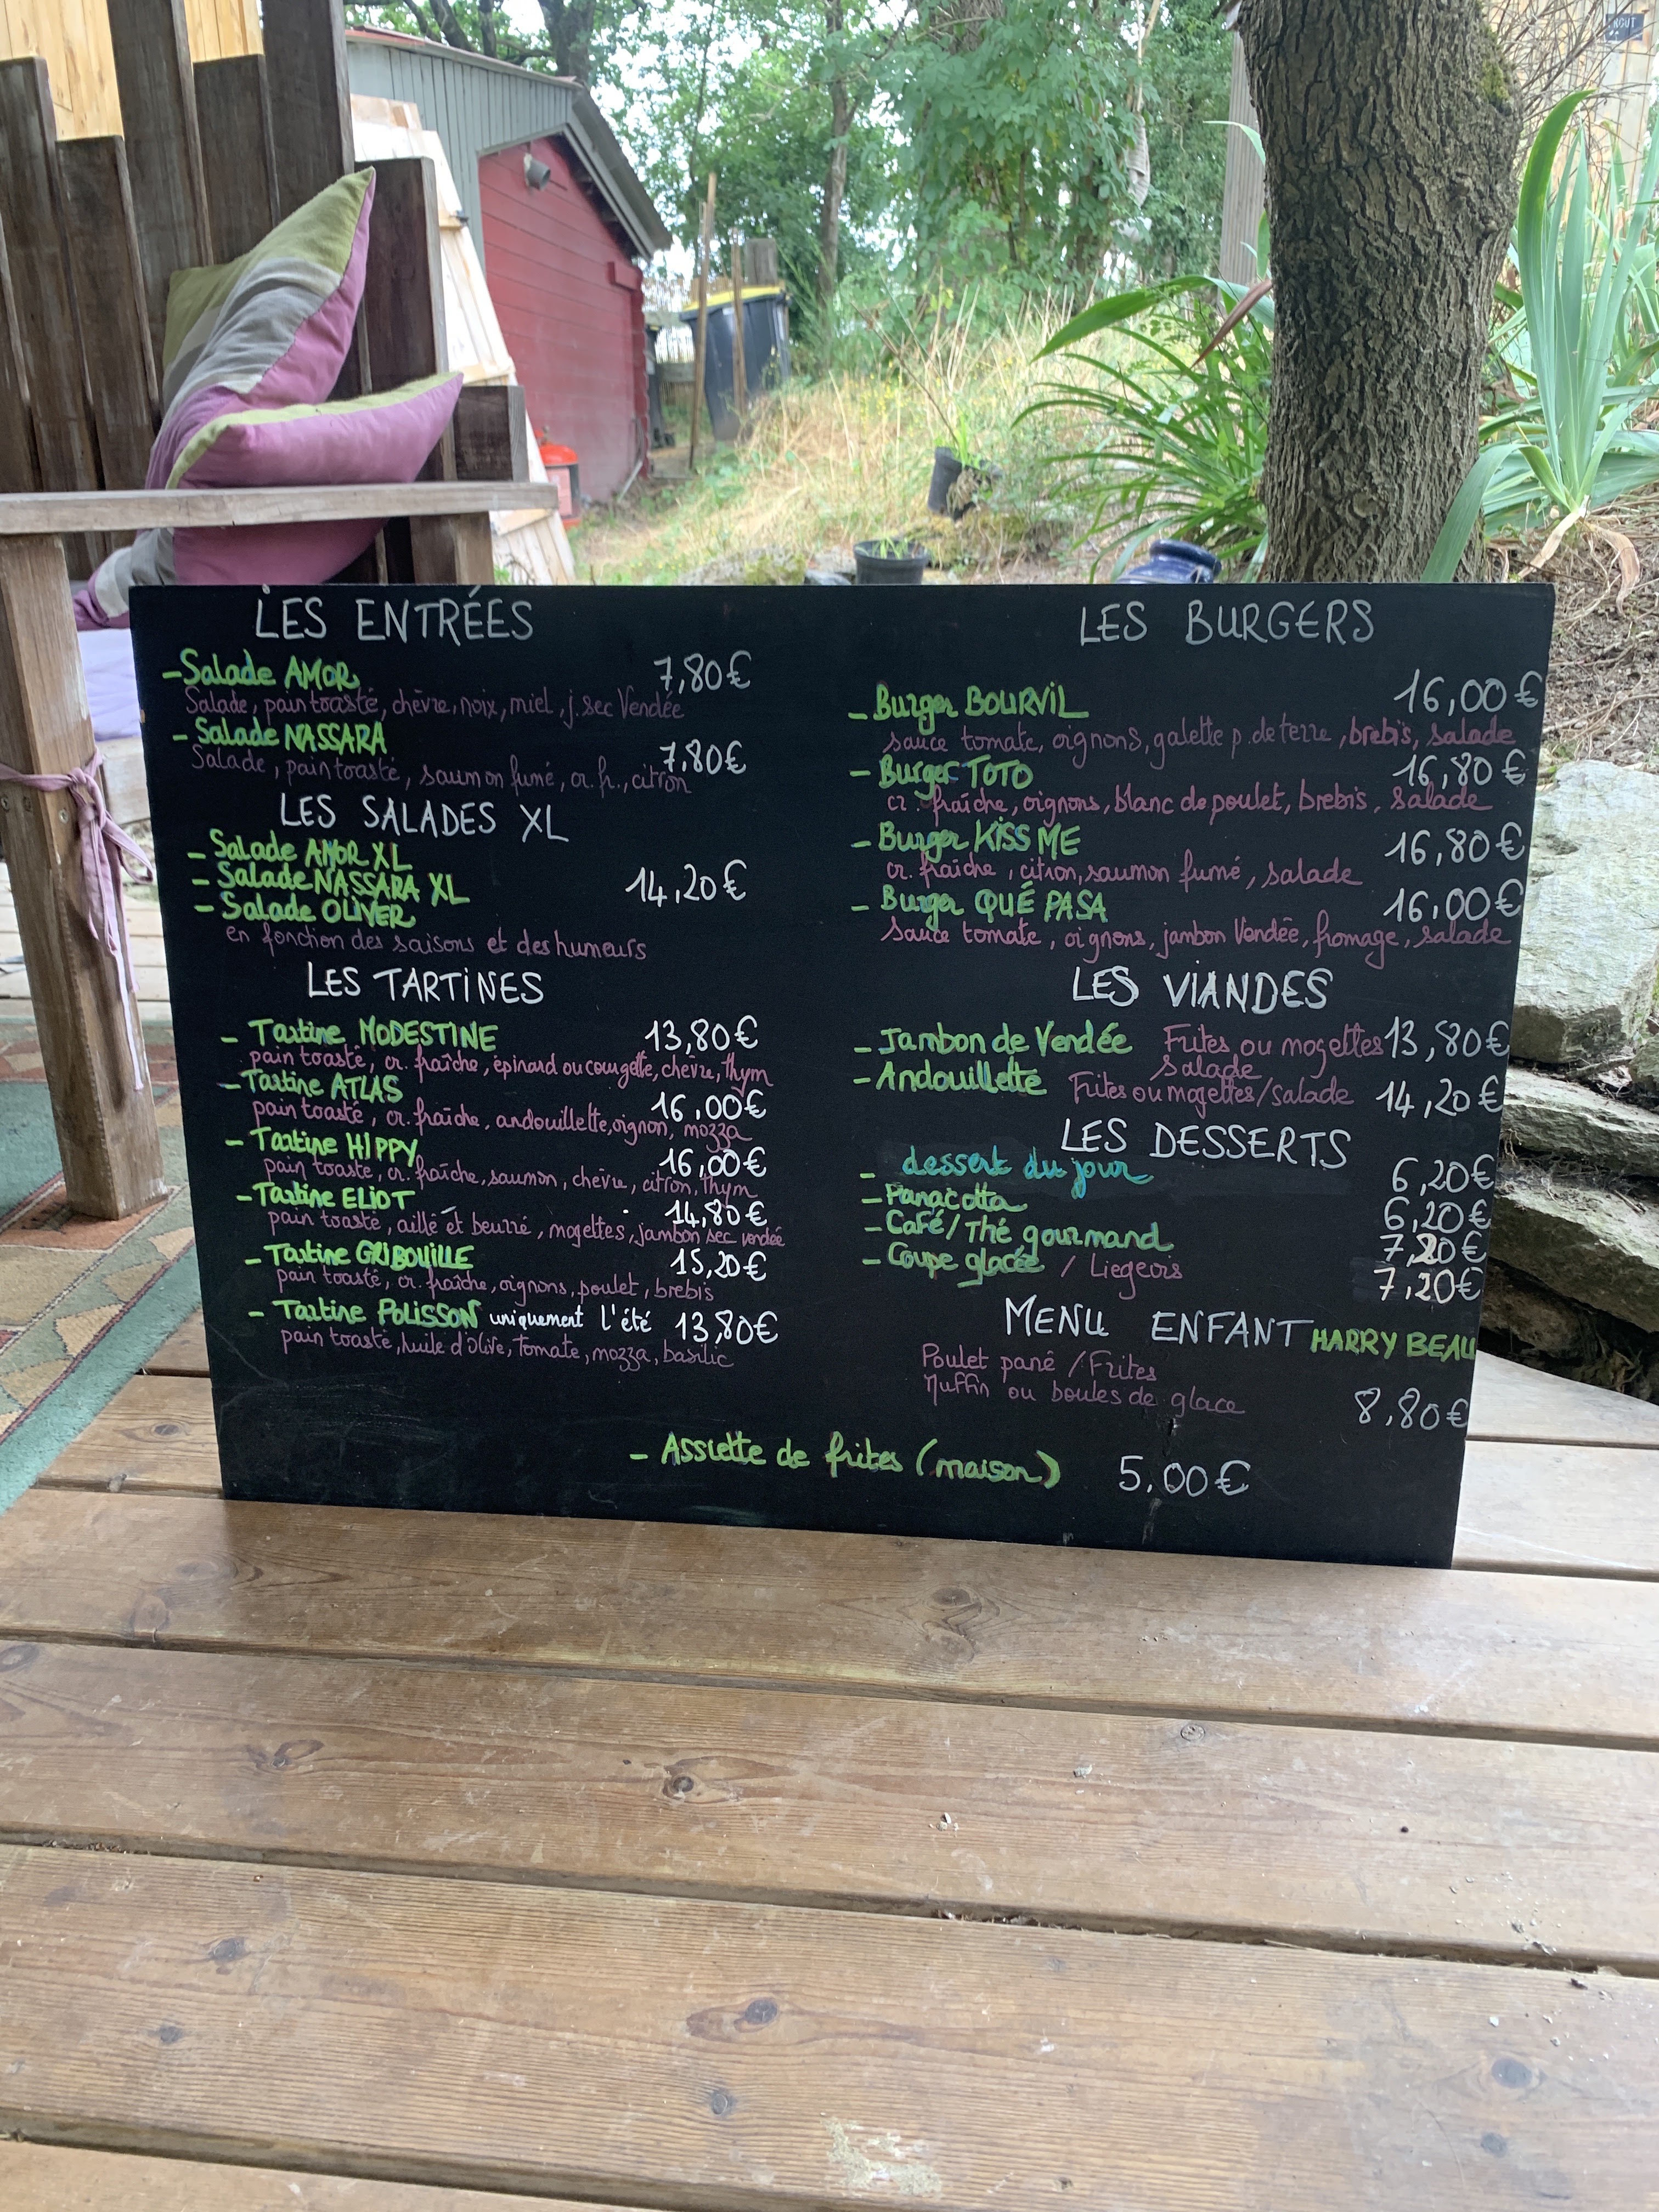 LES ENTRÉES
- Salade AMOR 7,80€
Salade, pain toasté, chèvre, noix, miel, j. sec Vendée
- Salade NASSARA 7,80€
Salade, pain toasté, saumon fumé, cr. fr., citron
LES SALADES XL
- Salade AMOR XL
- Salade NASSARA XL 14,20€
- Salade OLIVER
en fonction des saisons et des humeurs
LES TARTINES
- Tartine MODESTINE 13,80€
pain toasté, cr. fraîche, épinard ou courgette, chèvre, thym
- Tartine ATLAS 16,00€
pain toasté, cr. fraîche, andouillette, oignon, mozza
- Tartine HIPPY 16,00€
pain toasté, cr. fraîche, saumon, chèvre, citron, thym
- Tartine ELIOT 14,80€
pain toasté, aillé et beurré, mogettes, jambon sec vendée
- Tartine GRIBOUILLE 15,20€
pain toasté, cr. fraîche, oignons, poulet, brebis
- Tartine POLISSON uniquement l'été 13,80€
pain toasté, huile d'olive, Tomate, mozza, basilic
LES BURGERS
- Burger BOURVIL 16,00€
sauce tomate, oignons, galette p. de terre, brebis, salade
- Burger TOTO 16,80€
cr. fraîche, oignons, blanc de poulet, brebis, salade
- Burger KISS ME 16,80€
cr. fraîche, citron, saumon fumé, salade
- Burger QUÉ PASA 16,00€
Sauce tomate, oignons, jambon Vendée, fromage, salade
LES VIANDES
- Jambon de Vendée Frites ou mogettes 13,80€
Salade
- Andouillette Frites ou mogettes/salade 14,20€
LES DESSERTS
- dessert du jour 6,20€
- Panacotta 6,20€
- Café/Thé gourmand 7,20€
- Coupe glacée / Liegeois 7,20€
MENU ENFANT HARRY BEAU
Poulet pané / Frites
Muffin ou boules de glace 8,80€
- Assiette de frites (maison) 5,00€